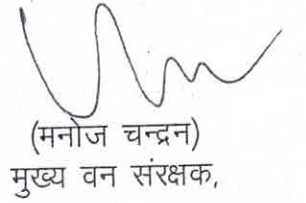 (मनोज चन्द्रन)
मुख्य वन संरक्षक,